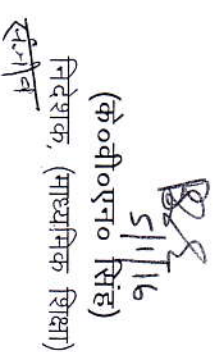 5/1/16
(के०वी०एन० सिंह)
निदेशक, (माध्यमिक शिक्षा)